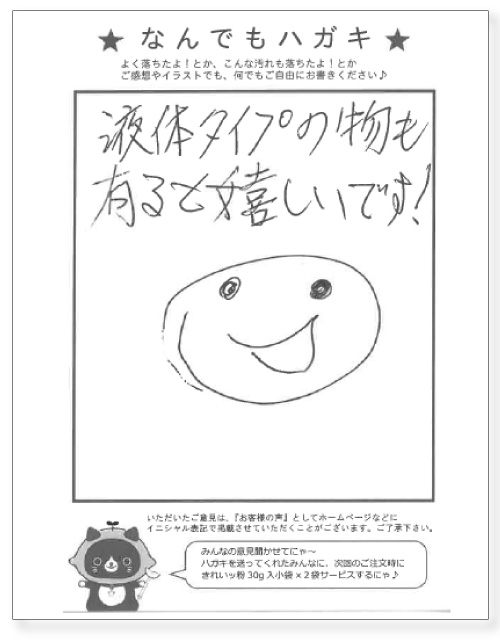 ★ なんでもハガキ ★
よく落ちたよ！とか、こんな汚れも落ちたよ！とか
ご感想やイラストでも、何でもご自由にお書きください♪
液体タイプの物も
有ると嬉しいです!
いただいたご意見は、『お客様の声』としてホームページなどに
イニシャル表記で掲載させていただくことがございます。ご了承下さい。
みんなの意見聞かせてにゃ～
ハガキを送ってくれたみんなに、次回のご注文時に
きれいッ粉 30g 入小袋 × 2 袋サービスするにゃ♪